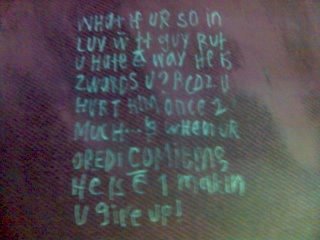 WHAt if UR SO IN
LUV W tt guy BUt
U HAtE A WAY HE IS
2WARDS U? BCDZ U
HURT HIM ONCE 2
MUCH... & WHEN UR
COMITTING
HE IS 1 MAKIN
U give UP!